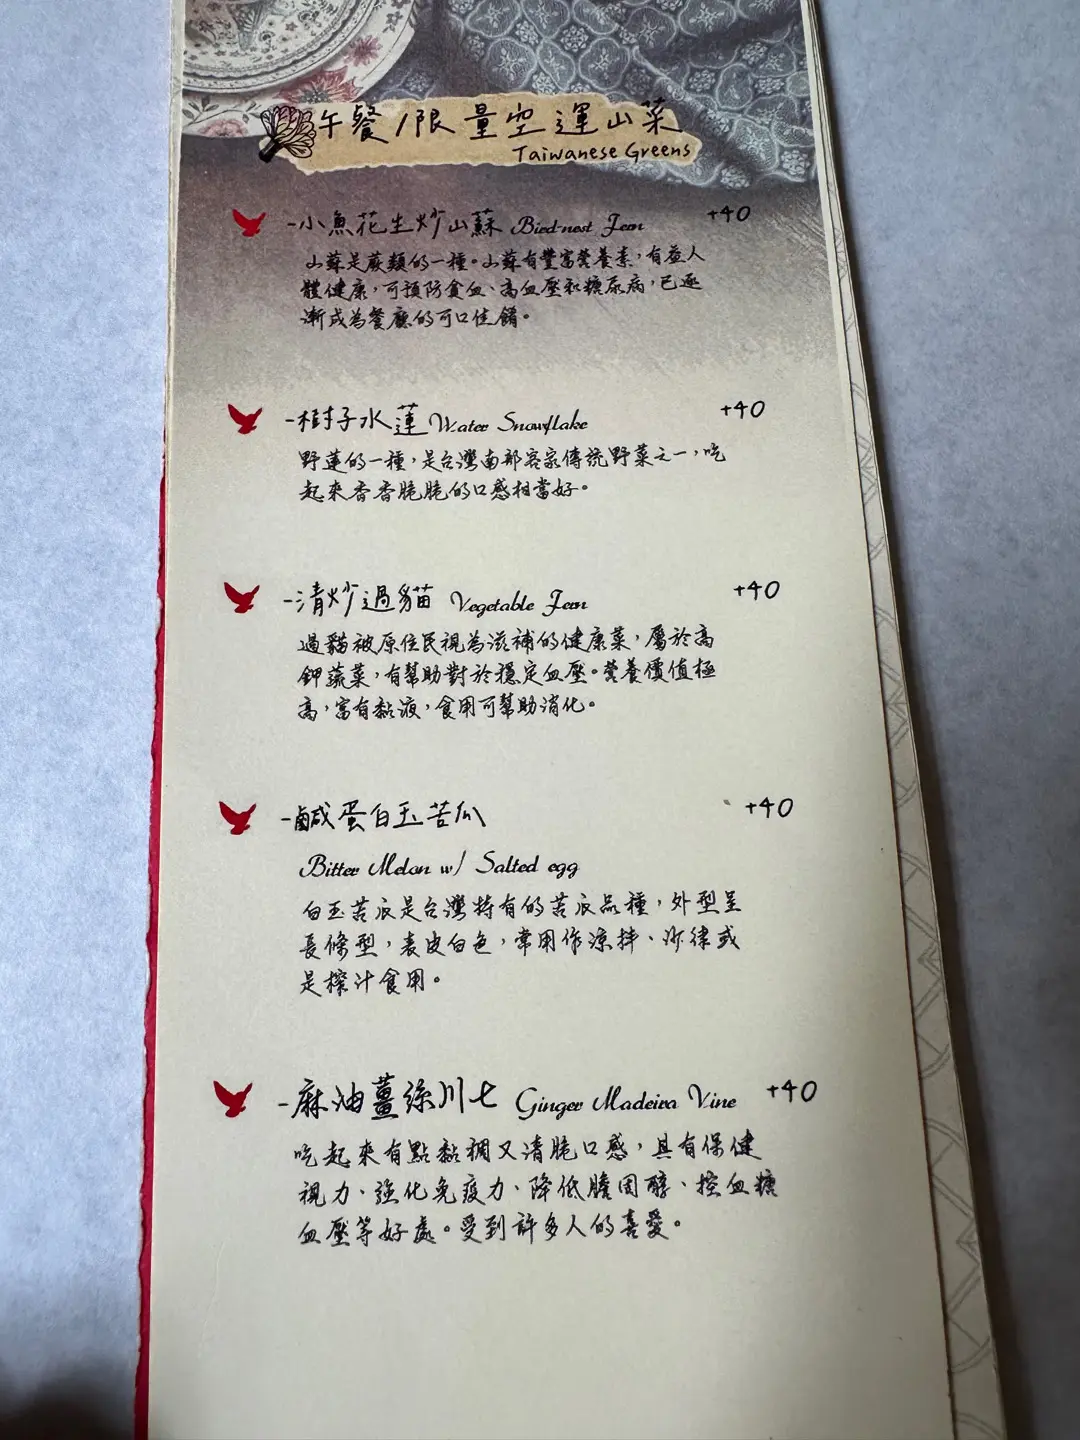 午餐/限量空運山菜
Taiwanese Greens
-小魚花生炒山蘇 Bird-nest Fern +40
山蘇是蕨類的一種。山蘇有豐富營養素,有益人
體健康,可預防貧血、高血壓和糖尿病,已逐
漸成為餐廳的可口佳餚。
-樹子水蓮 Water Snowflake +40
野蓮的一種,是台灣南部客家傳統野菜之一,吃
起來香香脆脆的口感相當好。
-清炒過貓 Vegetable Fern +40
過貓被原住民視為滋補的健康菜,屬於高
鉀蔬菜,有幫助對於穩定血壓。營養價值極
高,富有黏液,食用可幫助消化。
-鹹蛋白玉苦瓜 +40
Bitter Melon w/ Salted egg
白玉苦瓜是台灣特有的苦瓜品種,外型呈
長條型,表皮白色,常用作涼拌、沙律或
是榨汁食用。
-麻油薑絲川七 Ginger Madeira Vine +40
吃起來有點黏稠又清脆口感,具有保健
視力、強化免疫力、降低膽固醇、控血糖
血壓等好處。受到許多人的喜愛。